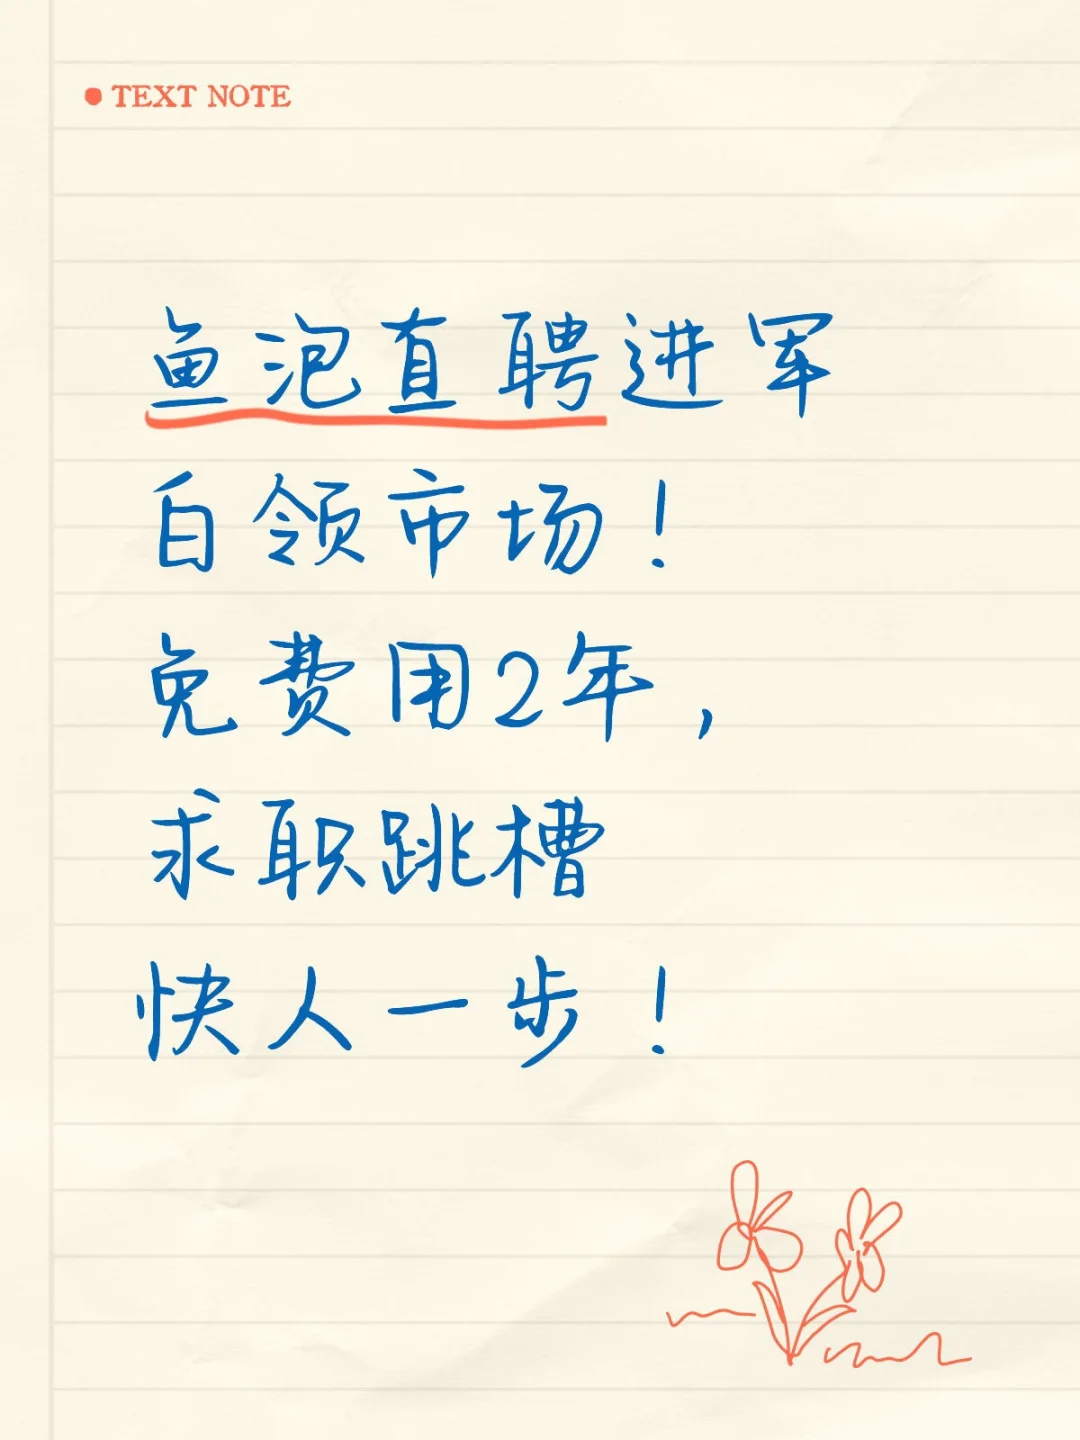 TEXT NOTE
鱼泡直聘进军
白领市场！
免费用2年，
求职跳槽
快人一步！